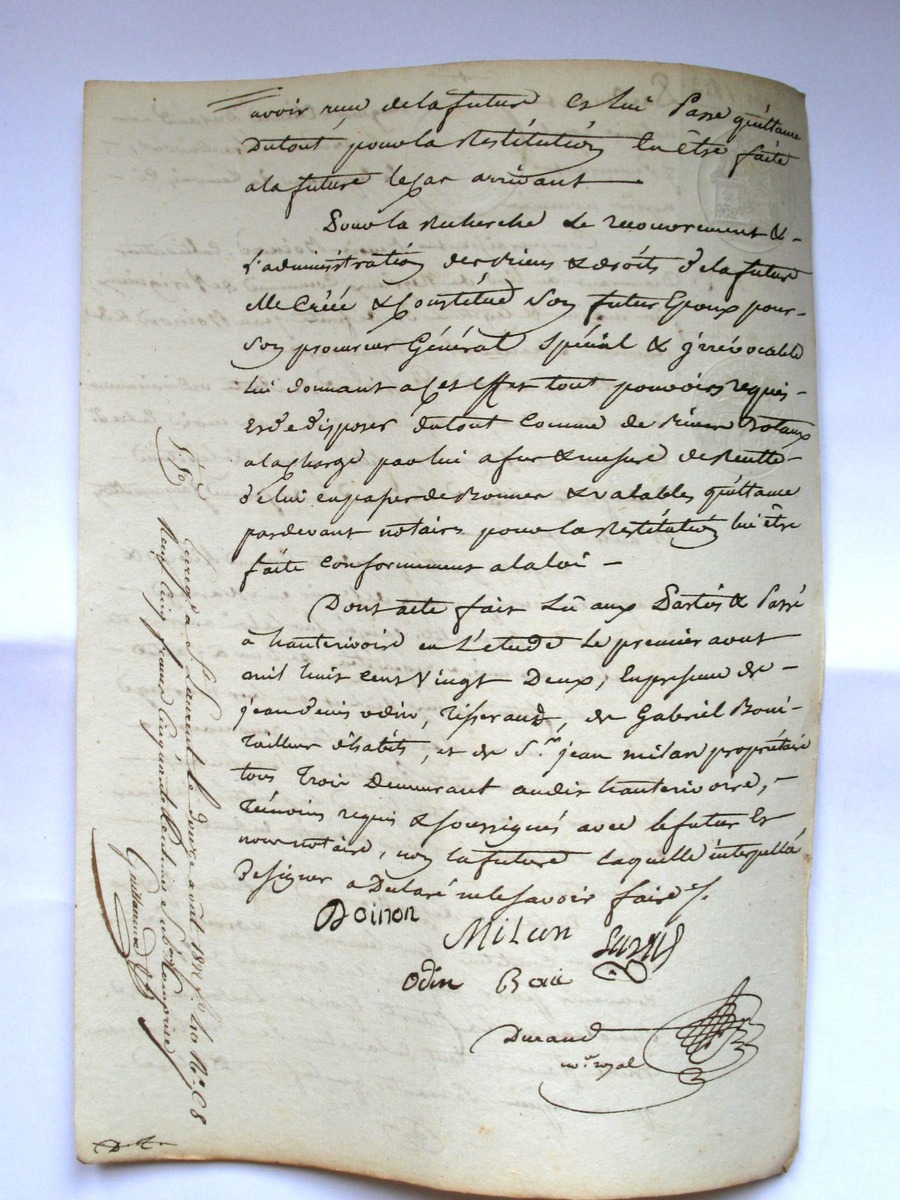 avoir reçu de la future et lui Passe quittance
Du tout pour la Restitution En être faite
a la future le cas arrivant
Pour la Recherche Le recouvrement &
L'administration des Biens & droits de la future
Elle Créée & Constitue Son futur Epoux pour
Son procureur Général Spécial & irrévocable
lui donnant a Cet Effet tout pouvoirs requis
Et de disposer du tout Comme de Biens
a la charge par lui a fur & mesure de Recette
de lui en passer de Bonnes & valables quittance
pardevant notaires pour la Restitution lui être
faite conformement a la loi
Dont acte fait Lû aux Parties & Passé
à hauterivoire en L'étude Le premier aout
mil huit cent Vingt Deux, En presence de
jean denis odin, tisserand, de Gabriel Boui
tailleur d'habits, et de S.r jean milan propriétaire
tous Trois Demeurant audit hauterivoire,
Témoins requis & soussignés avec le futur Et
nous notaire, non la future Laquelle interpellée
De signer a Declaré ne le savoir faire
Doinon
Milan
Odin Boui
Durand
n.re royal
à S.t Laurent le douze août f.o 40 N.o 8
Reçu Cinq francs Cinquante Centimes
Guillaume